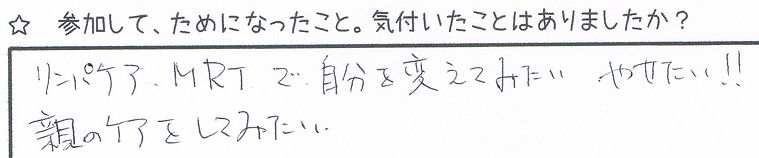 ☆ 参加して、ためになったこと。気付いたことはありましたか？
リンパケア. MRT で 自分を変えてみたい やせたい!!
親のケアをしてみたい.